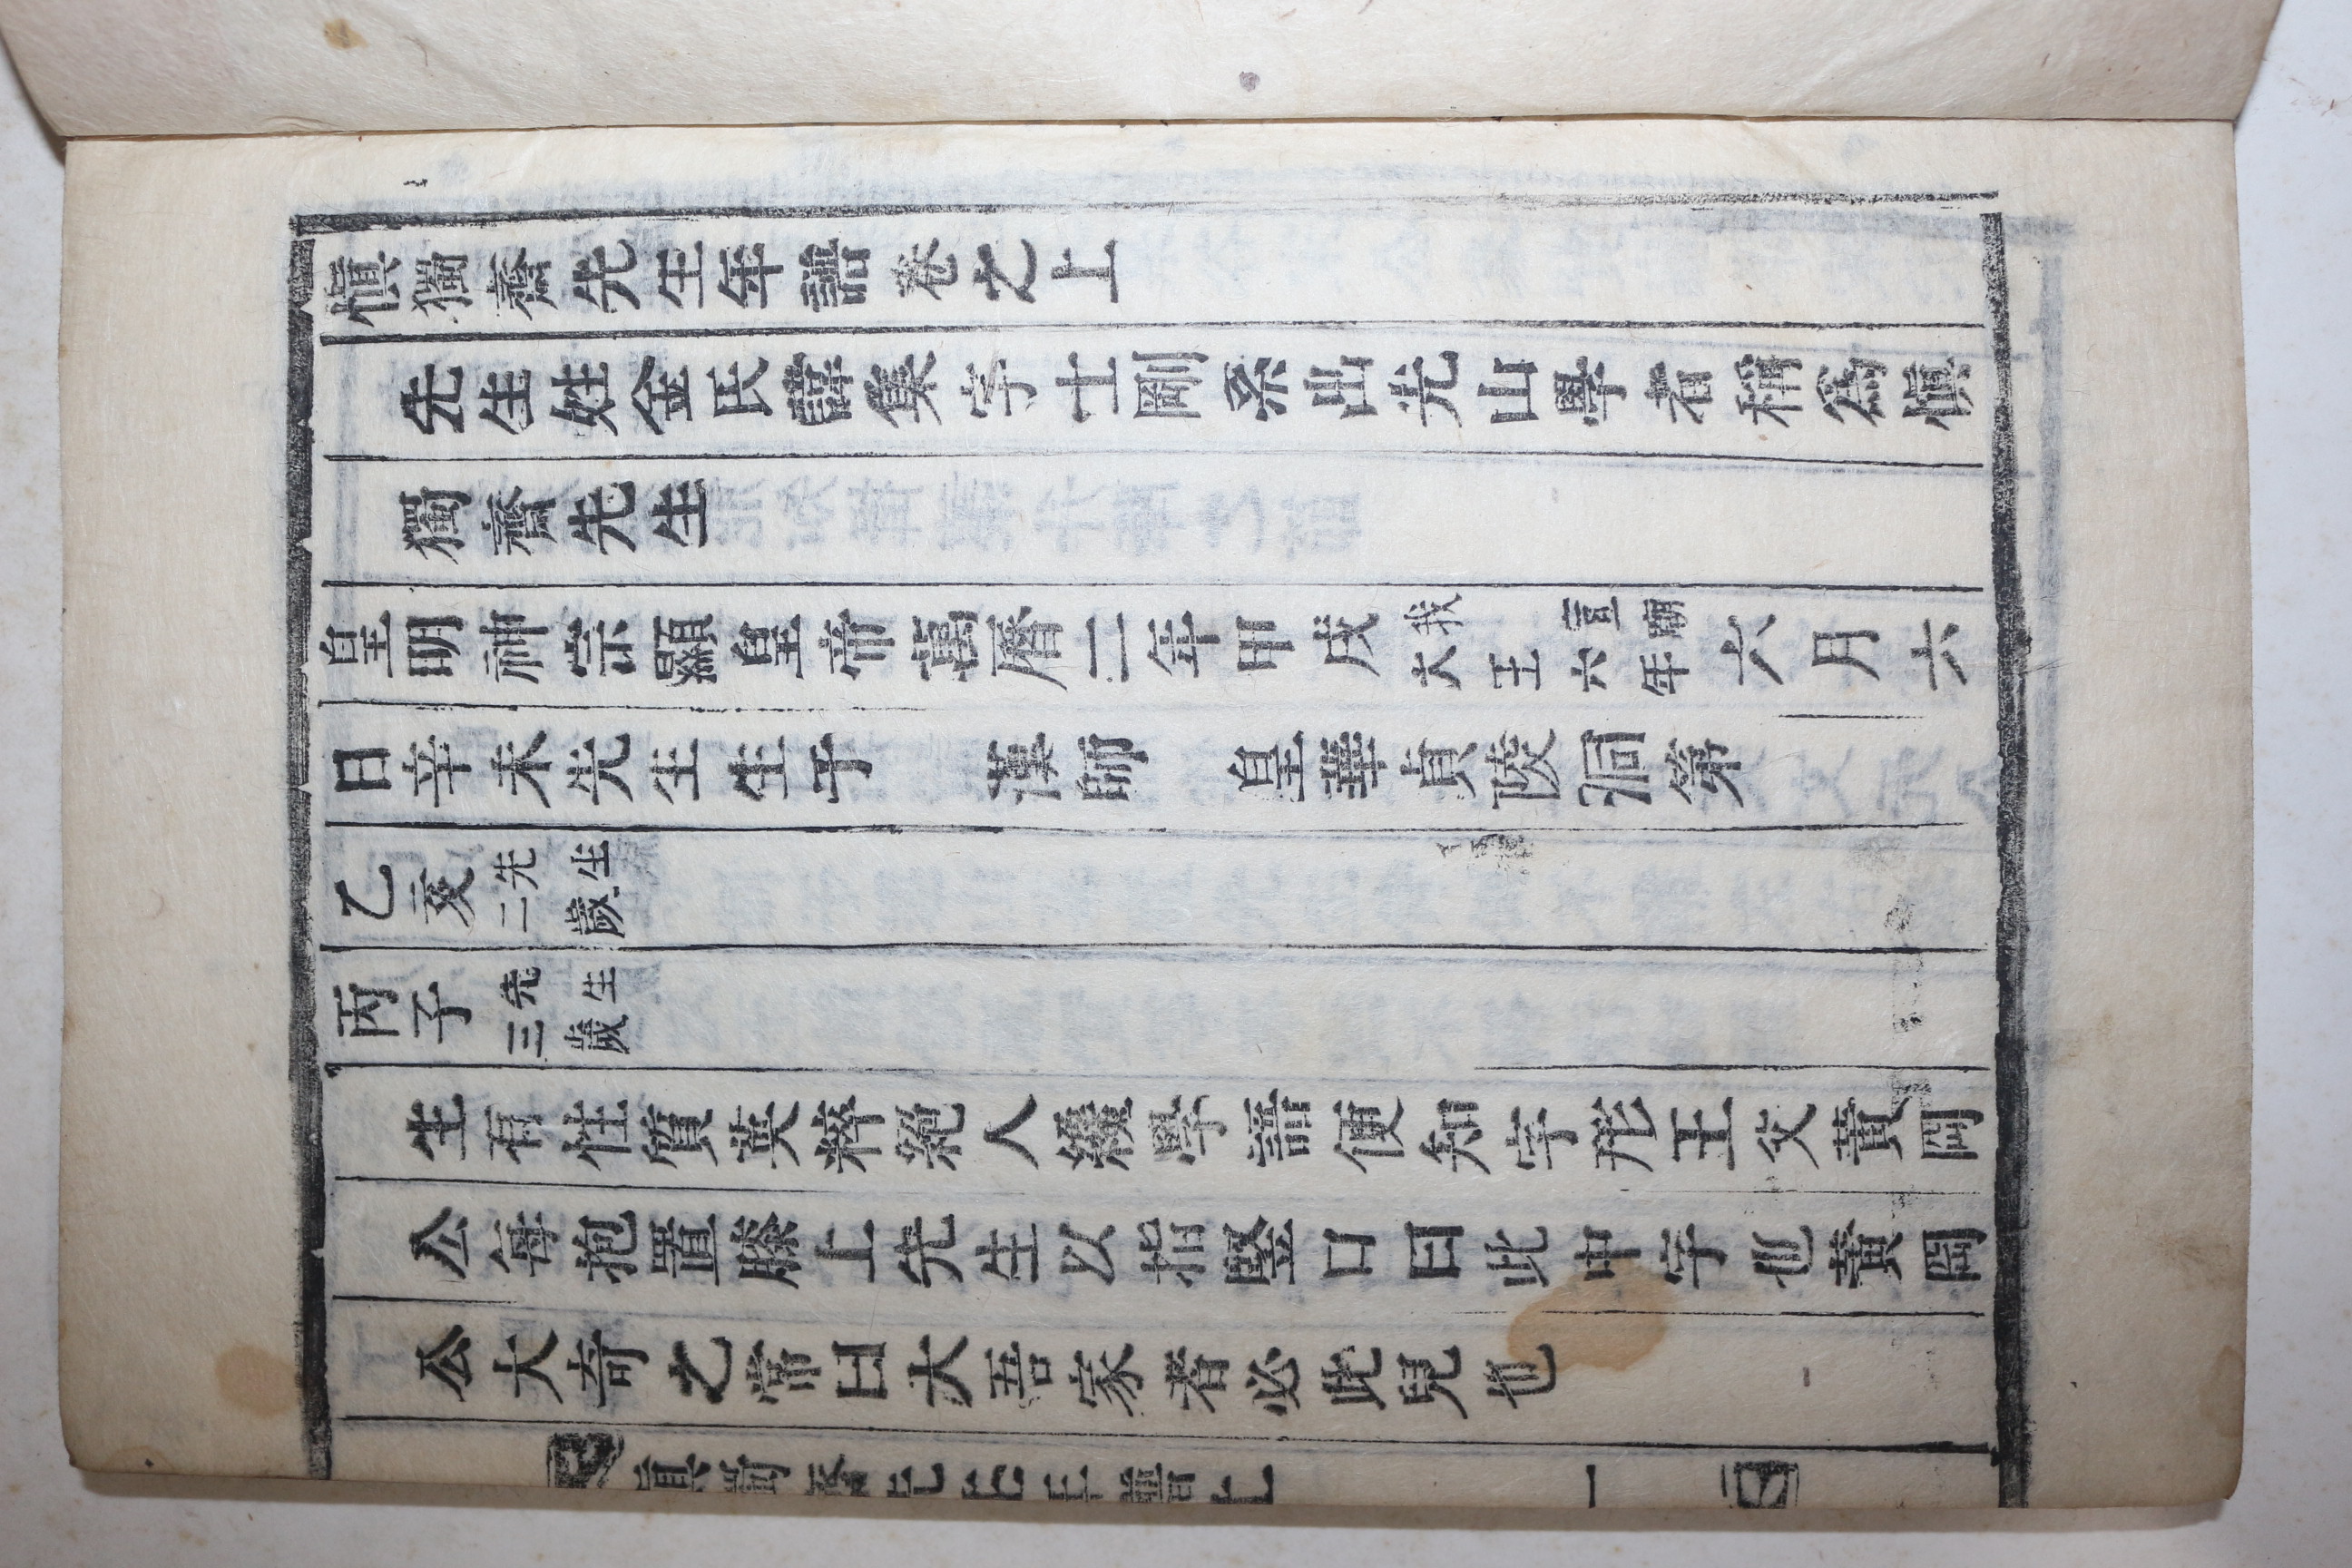 愼獨齋先生年譜卷之上
先生姓金氏諱集字士剛系出光山學者稱爲愼
獨齋先生
皇明神宗顯皇帝萬曆二年甲戌我 宣廟大王六年六月六
日辛未先生生于 漢師 皇華貞陵洞第
乙亥先生二歲
丙子先生三歲
生有性質英粹絕人纔學語便知字形王父黃岡
公每抱置膝上先生以指竪口曰此中字也黃岡
公大奇之常曰大吾家者必此兒也
愼獨齋先生年譜上 一